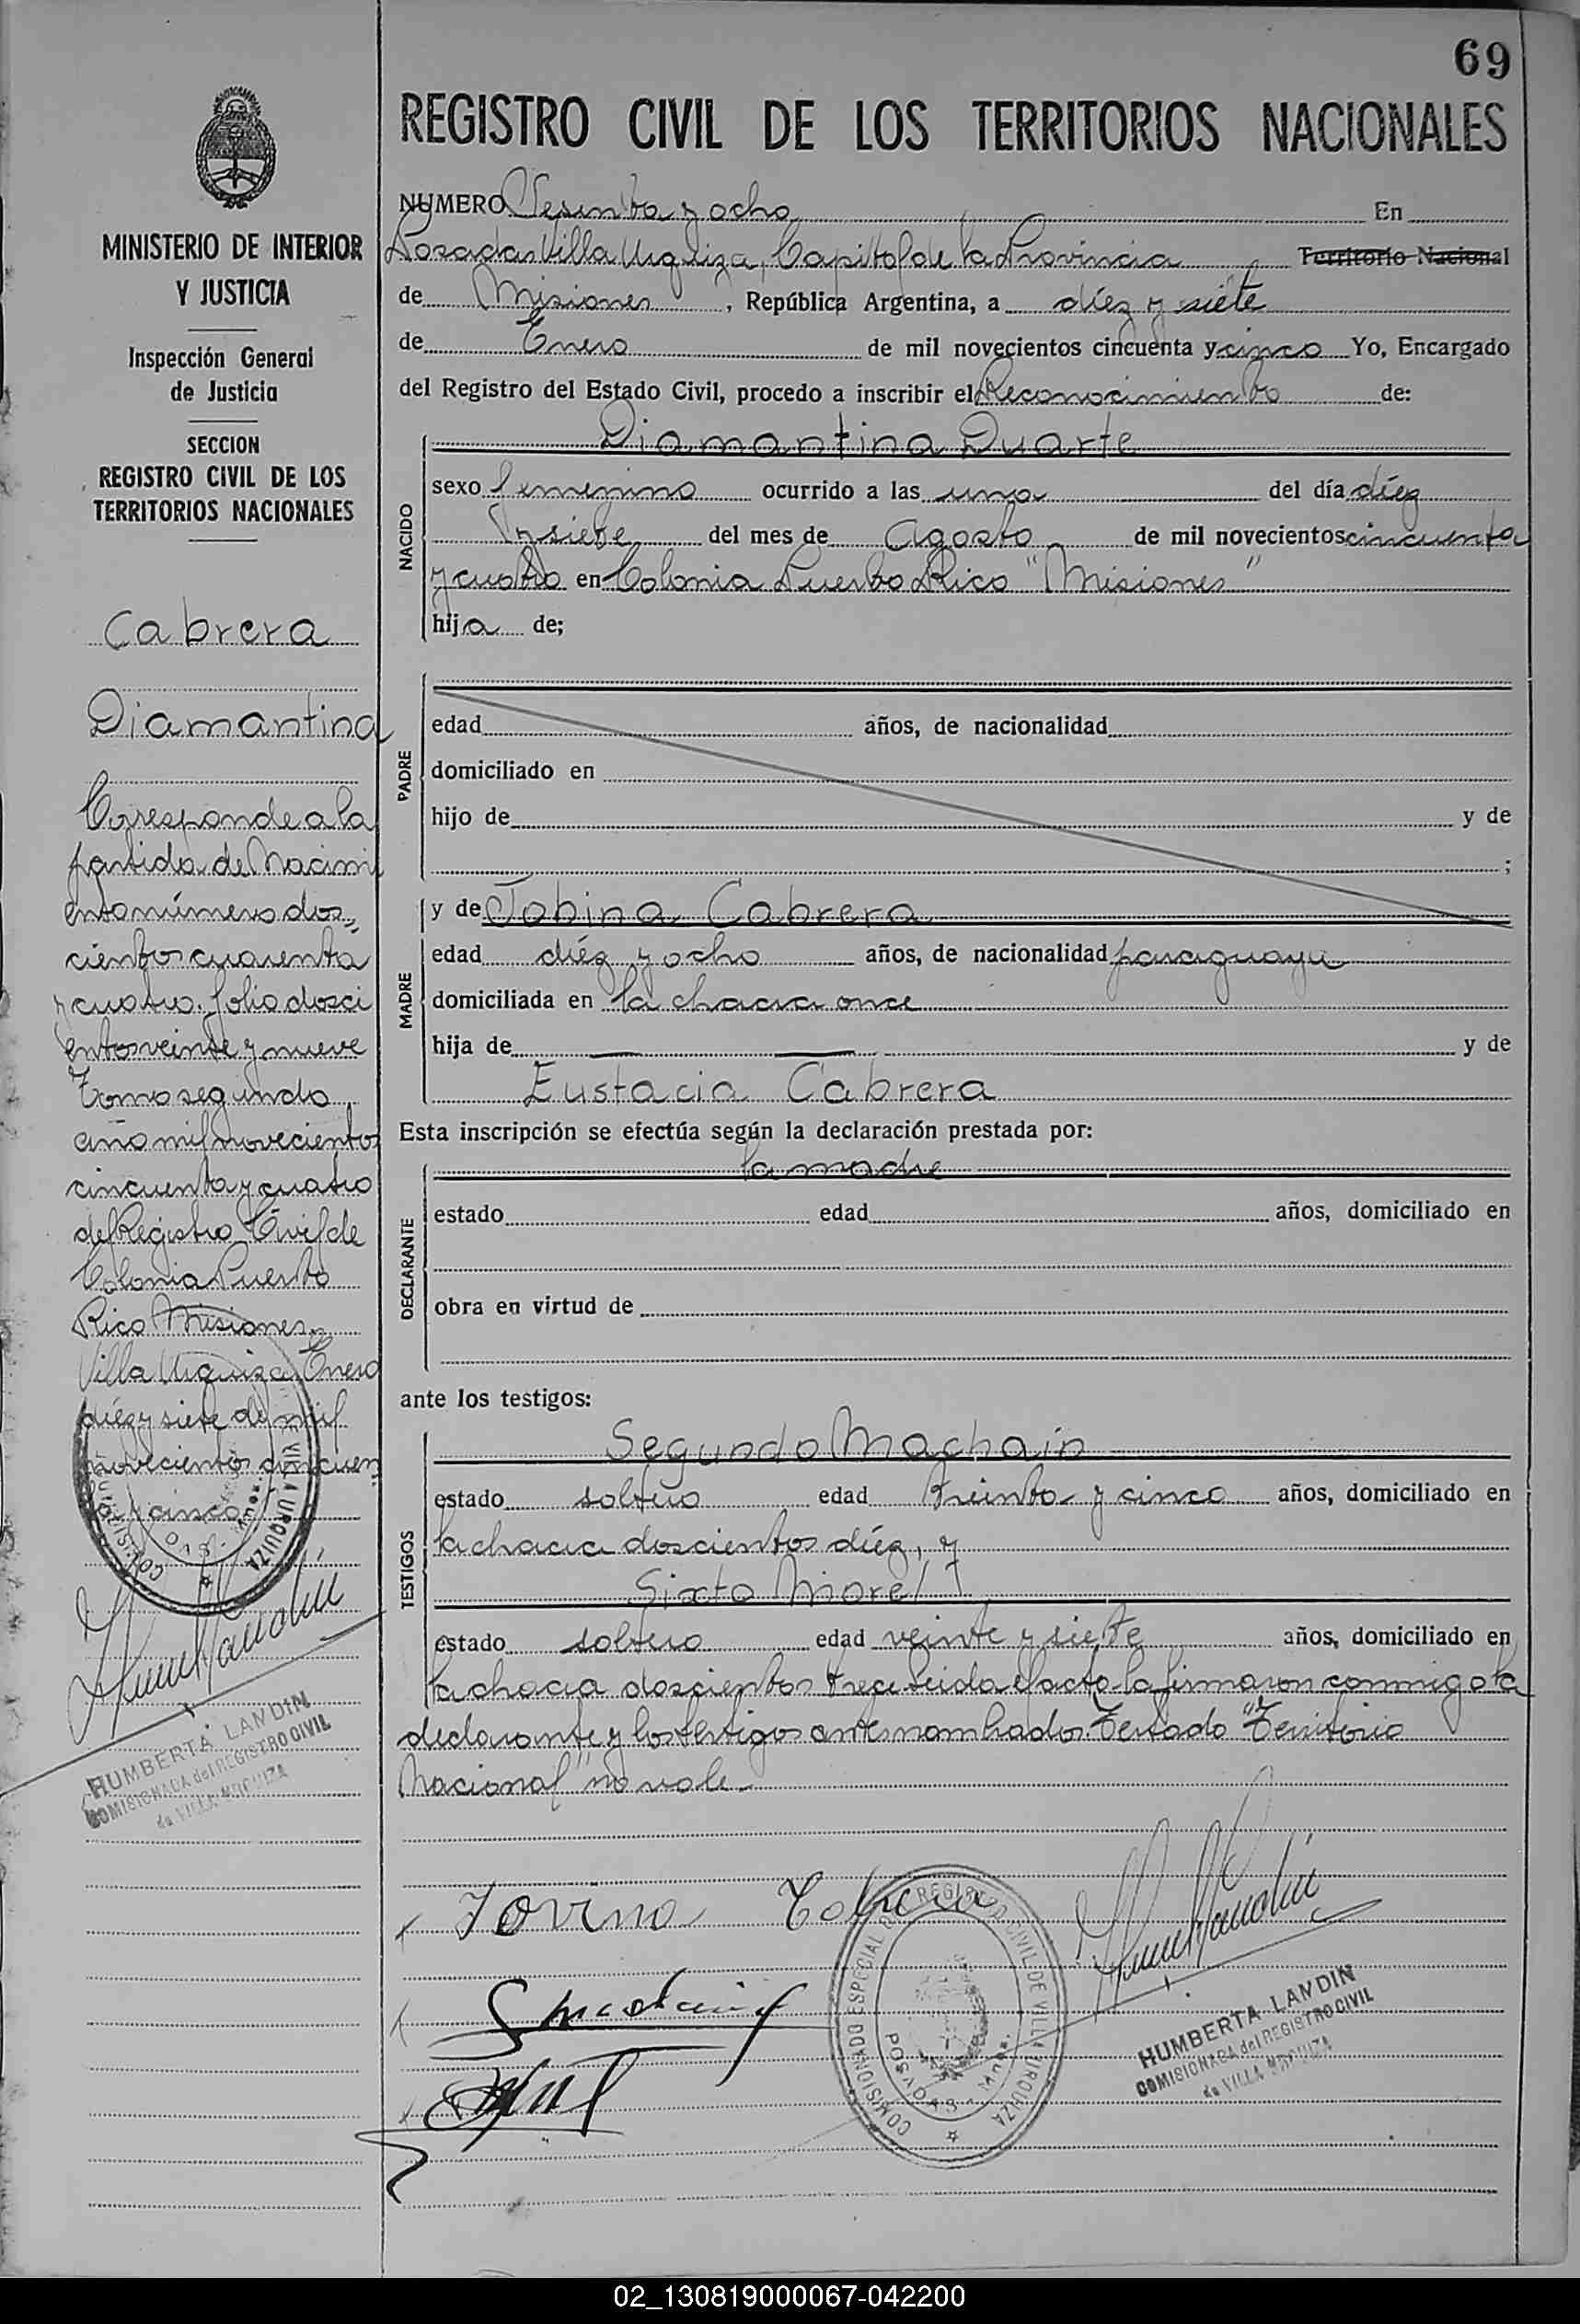 69
REGISTRO CIVIL DE LOS TERRITORIOS NACIONALES
MINISTERIO DE INTERIOR
Y JUSTICIA
Inspección General
de Justicia
SECCION
REGISTRO CIVIL DE LOS
TERRITORIOS NACIONALES
Cabrera
Diamantina
Corresponde a la
partida de Nacimi
ento número dos
cientos cuarenta
y cuatro. folio dosci
entos veinte y nueve
Tomo segundo
año mil novecientos
cincuenta y cuatro
del Registro Civil de
Colonia Puerto
Rico Misiones
Villa Urquiza, Enero
diéz y siete de mil
novecientos cincuen
y cinco
HUMBERTA LANDIN
COMISIONADA del REGISTRO CIVIL
de VILLA URQUIZA
NUMERO Sesenta y ocho En
Posadas Villa Urquiza, Capital de la Provincia Territorio Nacional
de Misiones, República Argentina, a diéz y siete
de Enero de mil novecientos cincuenta y cinco Yo, Encargado
del Registro del Estado Civil, procedo a inscribir el Reconocimiento de:
Diamantina Duarte
NACIDO
sexo femenino ocurrido a las una del día diéz
y siete del mes de Agosto de mil novecientos cincuenta
y cuatro en Colonia Puerto Rico "Misiones"
hija de;
PADRE
edad años, de nacionalidad
domiciliado en
hijo de y de
;
y de Jobina Cabrera
MADRE
edad diéz y ocho años, de nacionalidad paraguaya
domiciliada en la chacra once
hija de y de
Eustacia Cabrera
Esta inscripción se efectúa según la declaración prestada por:
la madre
DECLARANTE
estado edad años, domiciliado en
obra en virtud de
ante los testigos:
Segundo Machain
TESTIGOS
estado soltero edad treinta y cinco años, domiciliado en
la chacra doscientos diéz, y
Sixto Morel
estado soltero edad veinte y siete años, domiciliado en
la chacra doscientos trece leida el acta la firmaron conmigo la
declarante y los testigos antes nombrados. Testado "Territorio
Nacional" no vale.
Jovina Cabrera
HUMBERTA LANDIN
COMISIONADA del REGISTRO CIVIL
de VILLA URQUIZA
COMISIONADO ESPECIAL REGISTRO CIVIL DE VILLA URQUIZA
02_130819000067-042200